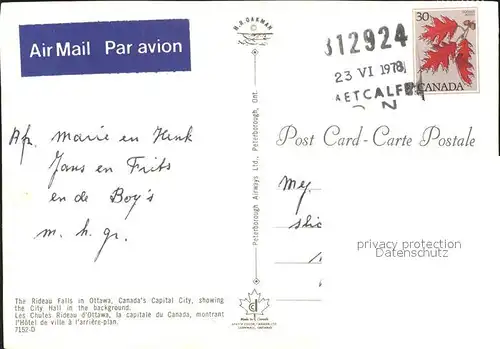 Air Mail Par avion
N.R. OAKMAN
312924
23 VI 1978
METCALFE
30
CANADA
Post Card - Carte Postale
Peterborough Airways Ltd., Peterborough, Ont.
Afz. Marie en Henk
Jans en Frits
en de Boy's
m. h. gr.
Mej.
privacy protection
Datenschutz
The Rideau Falls in Ottawa, Canada's Capital City, showing
the City Hall in the background.
Les Chutes Rideau d'Ottawa, la capitale du Canada, montrant
l'Hôtel de ville à l'arrière-plan.
7152-D